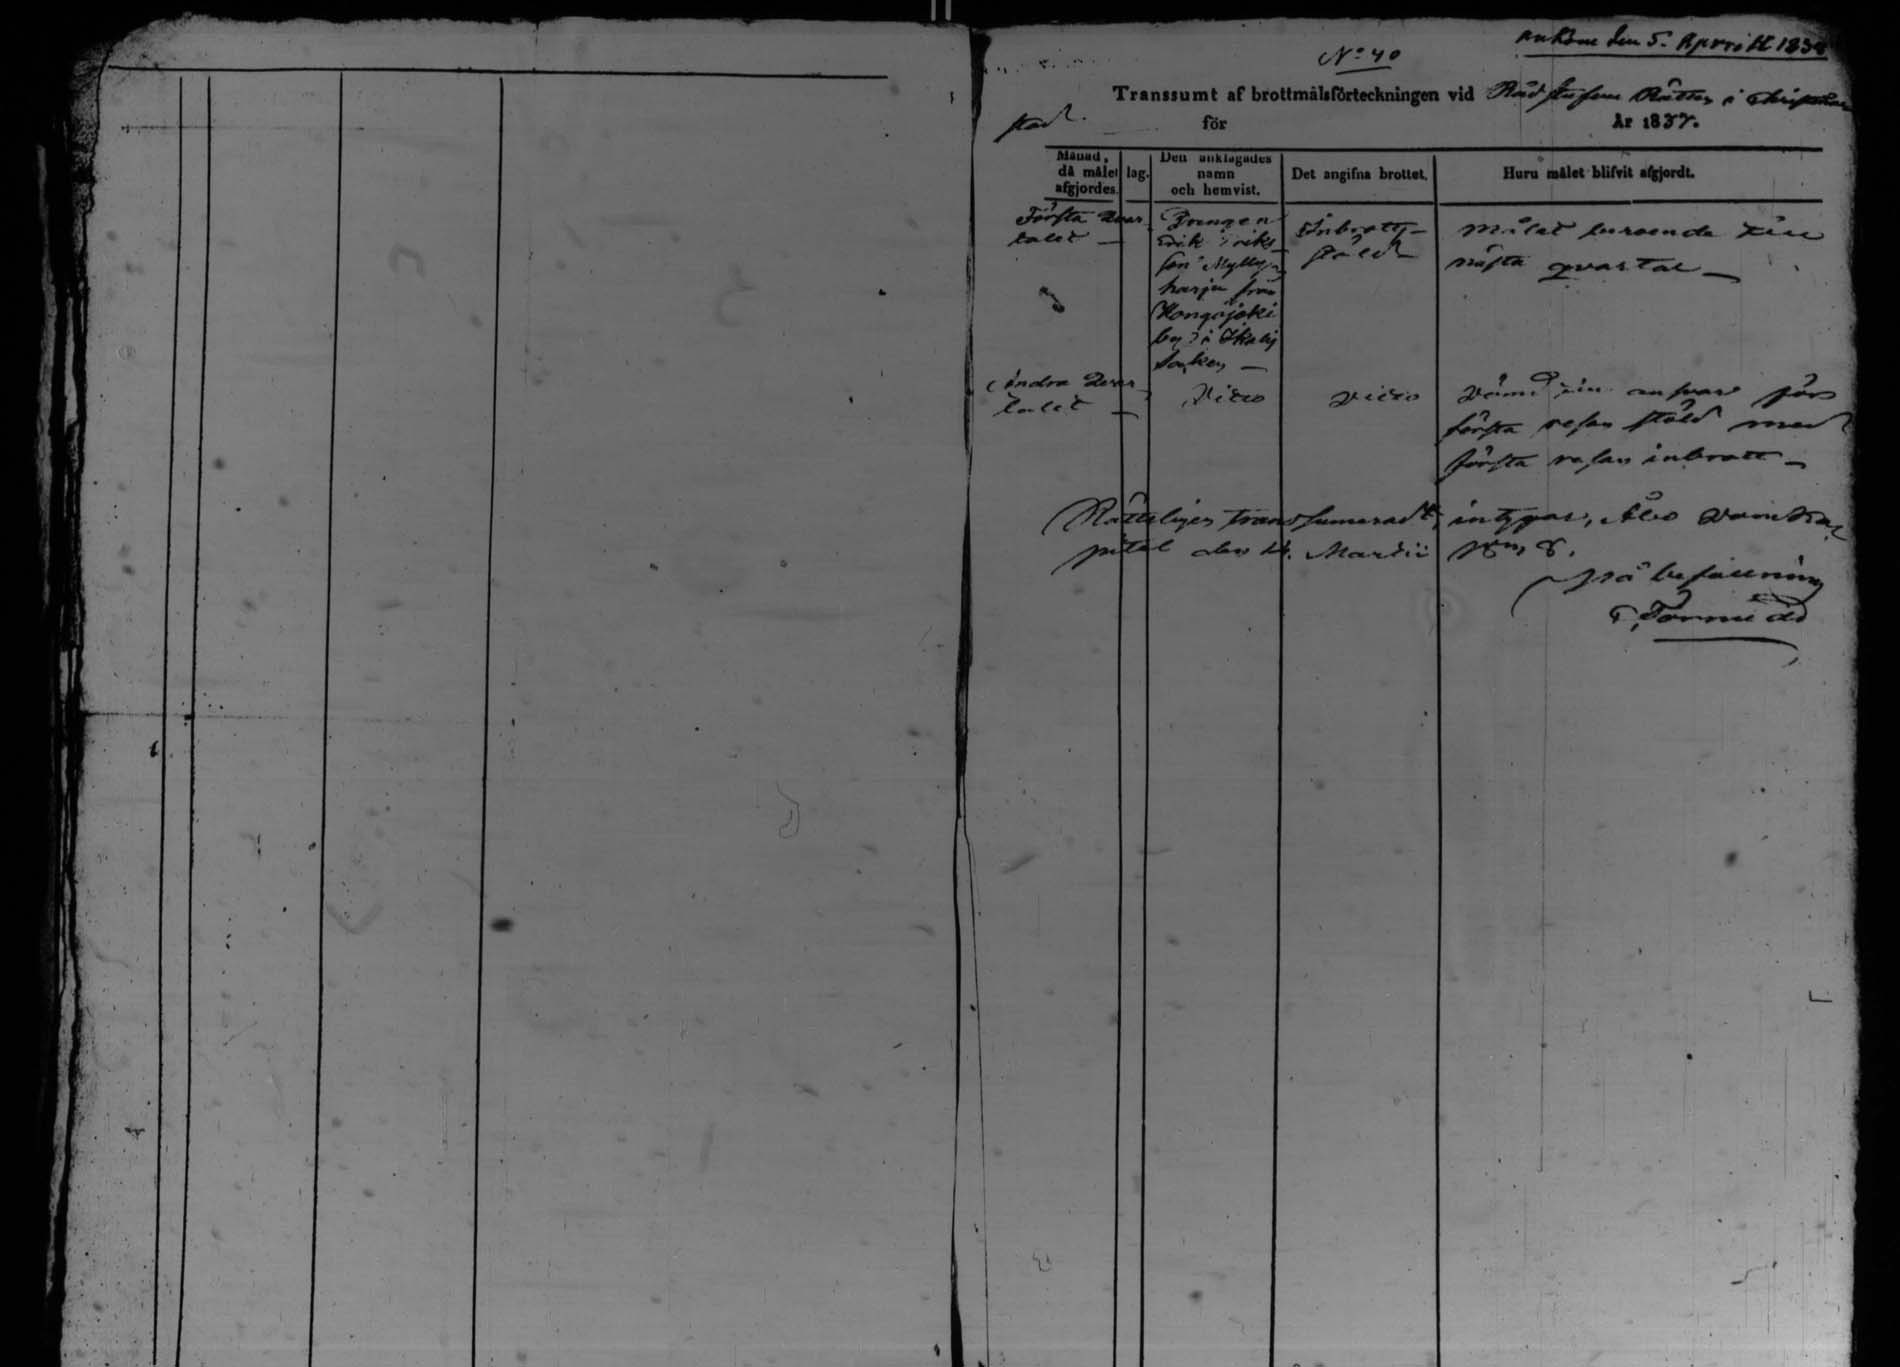 ankom den 5. Aprill 1838
No 40
Transsumt af brottmålsförteckningen vid Rådstufvu Rätten i Christine
stad för År 1837.
Månad, då målet afgjordes.
lag.
Den anklagades namn och hemvist.
Det angifna brottet.
Huru målet blifvit afgjordt.
Första Qvar
talet —
Drengen
Erik Eriks
son Mylly
harju från
Kongajoki
by i Ikalis
Socken —
Inbrotts
stöld
Målet beroende till
nästa qvartal —
Andra Qvar
talet —
Dito
Dito
Dömd till ansvar för
första resan stöld med
första resan inbrott —
Rätteligen transsumeradt, intygar, Åbo Domka
pitel den 14. Martii
På befallning